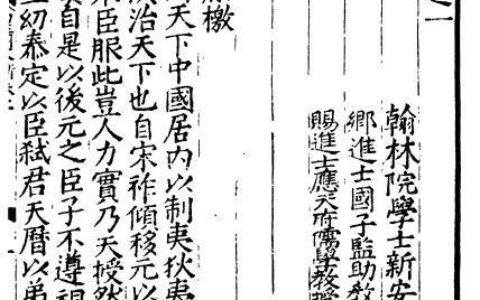 之一
翰林院學士新安
鄉進士國子監助教
賜進士應天府儒學教授
檄
天下中國居內以制夷狄夷
治天下也自宋祚傾移元以
臣服此豈人力實乃天授然
自是以後元之臣子不遵祖
幼泰定以臣弒君天曆以弟